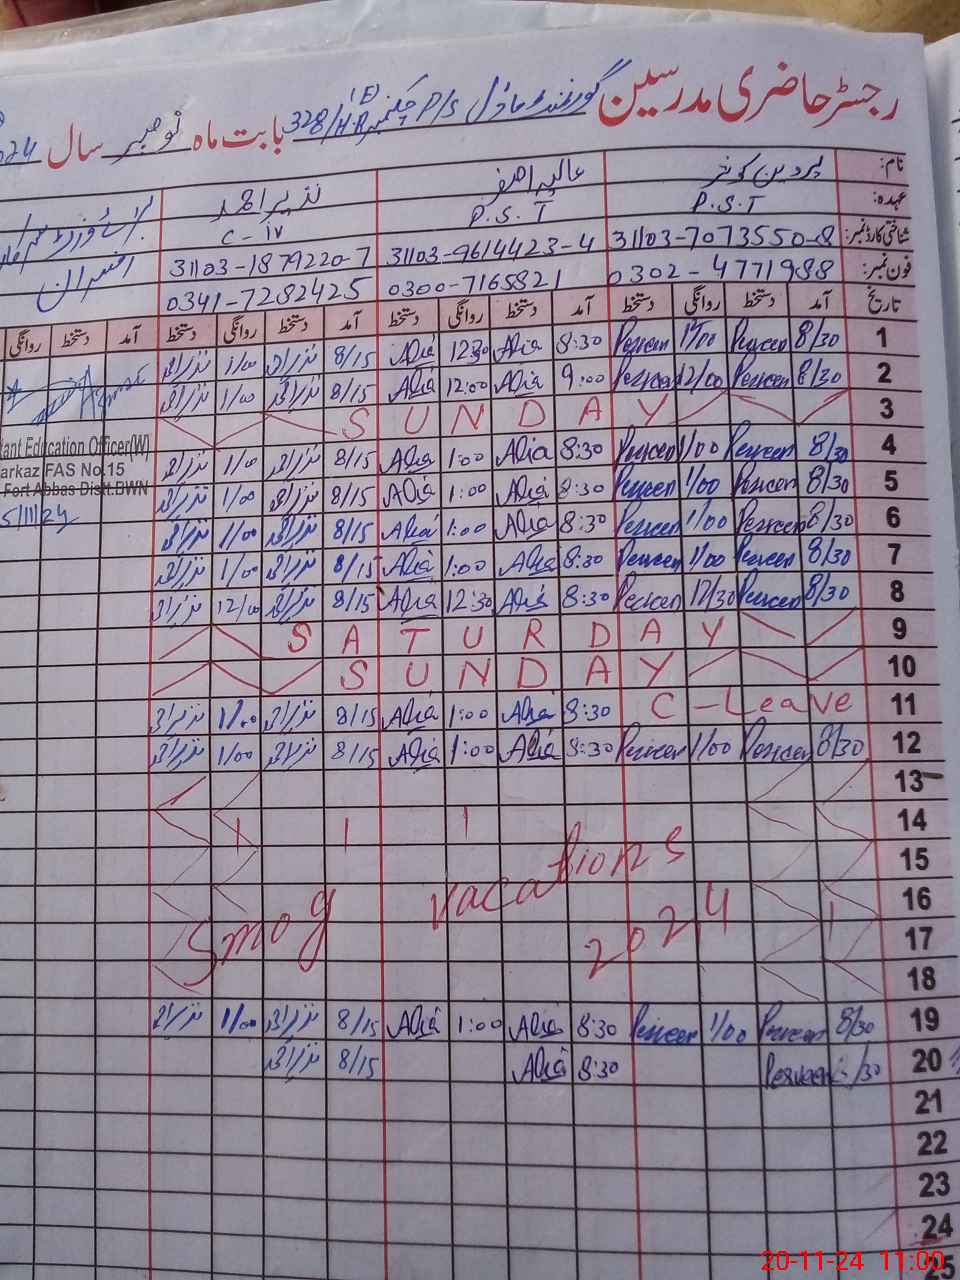 رجسٹر حاضری مدرسین گورنمنٹ ماڈل P/S چکنمبر 328/H.R (E) بابت ماہ نومبر سال 2024
نام: پروین کوثر عالیہ اصغر نذیر احمد
عہدہ: P.S.T P.S.T C-IV
شناختی کارڈ نمبر: 31103-7073550-8 31103-9614423-4 31103-1879220-7
فون نمبر: 0302-4771988 0300-7165821 0341-7282425
تاریخ آمد دستخط روانگی دستخط آمد دستخط روانگی دستخط آمد دستخط روانگی دستخط آمد دستخط روانگی
1 8/30 Perveen 1/00 Perveen 8:30 Alia 12:30 Alia 8/15 نذیراحمد 1/00 نذیراحمد
2 8/30 Perveen 12/00 Perveen 9:00 Alia 12:00 Alia 8/15 نذیراحمد 1/00 نذیراحمد
3 SUNDAY
4 8/30 Perveen 1/00 Perveen 8:30 Alia 1:00 Alia 8/15 نذیراحمد 1/00 نذیراحمد
5 8/30 Perveen 1/00 Perveen 8:30 Alia 1:00 Alia 8/15 نذیراحمد 1/00 نذیراحمد
6 8/30 Perveen 1/00 Perveen 8:30 Alia 1:00 Alia 8/15 نذیراحمد 1/00 نذیراحمد
7 8/30 Perveen 1/00 Perveen 8:30 Alia 1:00 Alia 8/15 نذیراحمد 1/00 نذیراحمد
8 8/30 Perveen 12/30 Perveen 8:30 Alia 12:30 Alia 8/15 نذیراحمد 12/00 نذیراحمد
9 SATURDAY
10 SUNDAY
11 C-Leave 8:30 Alia 1:00 Alia 8/15 نذیراحمد 1/00 نذیراحمد
12 8/30 Perveen 1/00 Perveen 8:30 Alia 1:00 Alia 8/15 نذیراحمد 1/00 نذیراحمد
13
14
15
16
17
18
Smog vacations 2024
19 8/30 Perveen 1/00 Perveen 8:30 Alia 1:00 Alia 8/15 نذیراحمد 1/00 نذیراحمد
20 8/30 Perveen 8:30 Alia 8/15 نذیراحمد
21
22
23
24
25
tant Education Officer(W)
arkaz FAS No.15
Fort Abbas Distt.BWN
5/11/24
20-11-24 11:00